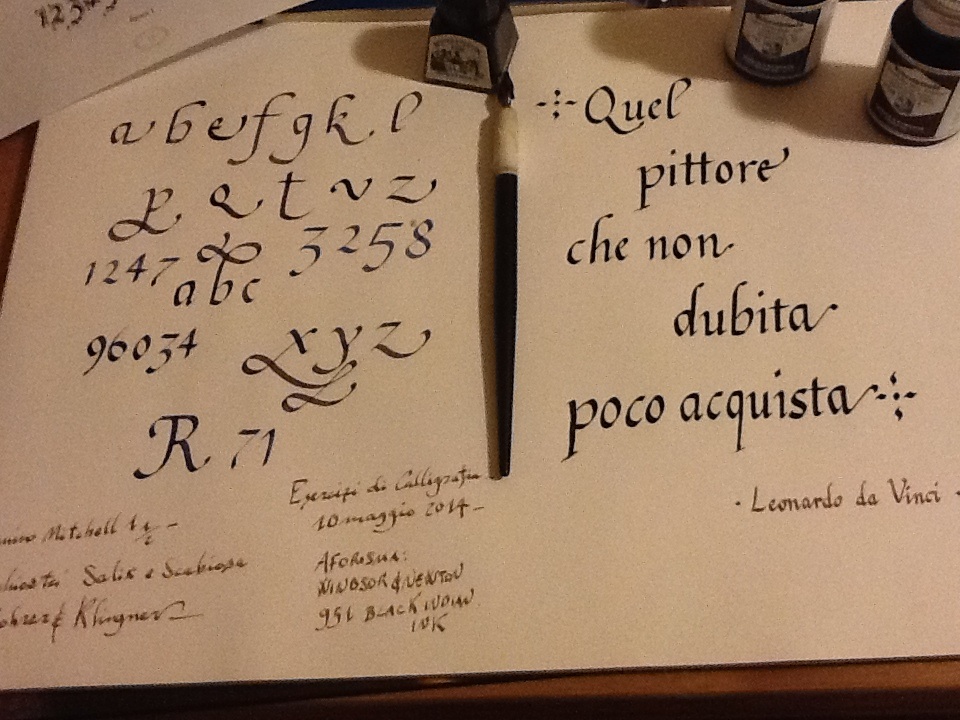 a b e f g k l
p Q t v z
1247 & 3258
abc
96034 xyz
&
R 71
Mitchell
Salix e Scabiosa
Rohrer & Klingner
Esercizi di Calligrafia
10 maggio 2014-
AFORISMA:
WINDSOR & NEWTON
951 BLACK INDIAN
INK
Quel
pittore
che non
dubita
poco acquista
· Leonardo da Vinci ·